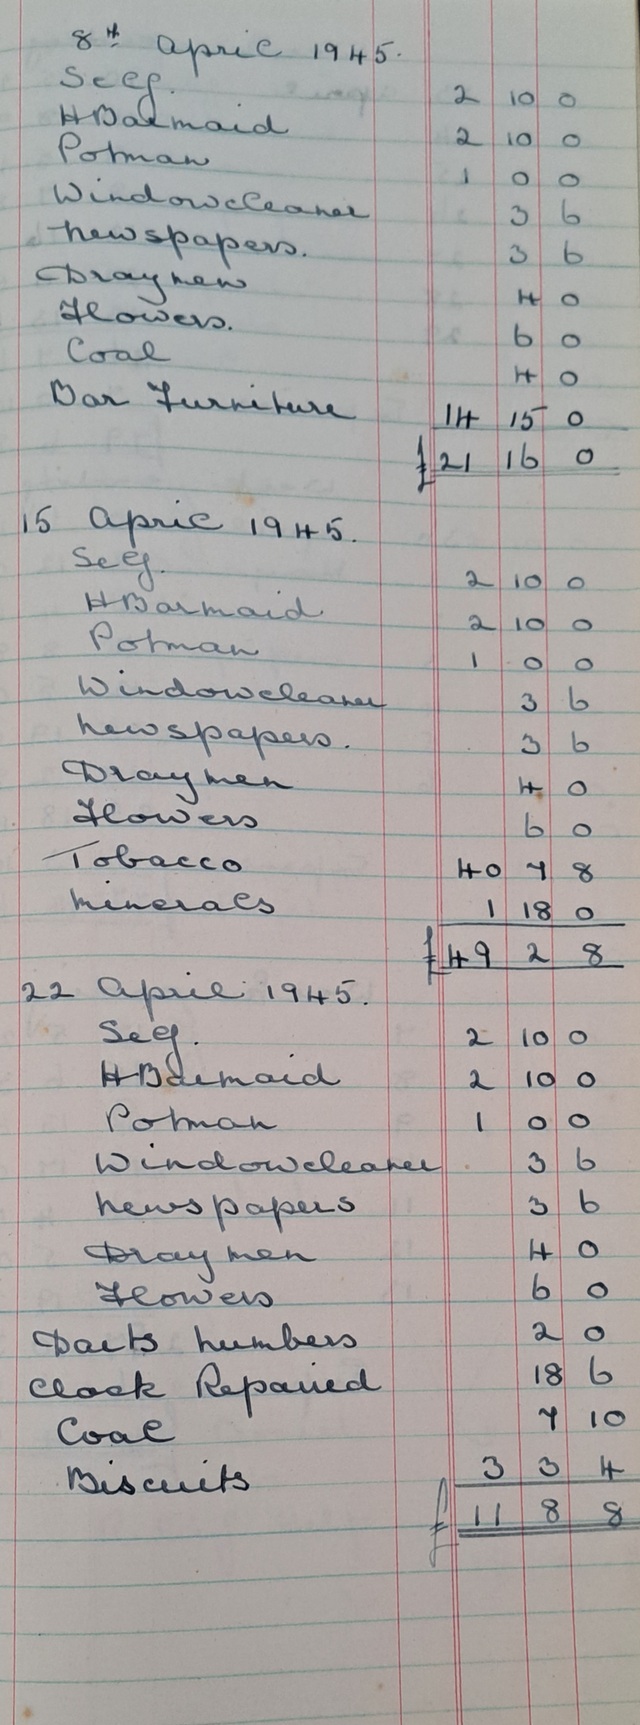 8th April 1945.
Self. 2 10 0
HBarmaid 2 10 0
Potman 1 0 0
Windowcleaner 3 6
newspapers. 3 6
Draymen 4 0
Flowers. 6 0
Coal 4 0
Bar Furniture 14 15 0
£21 16 0
15 April 1945.
Self. 2 10 0
HBarmaid 2 10 0
Potman 1 0 0
Windowcleaner 3 6
newspapers. 3 6
Draymen 4 0
Flowers 6 0
Tobacco 40 7 8
minerals 1 18 0
£49 2 8
22 April 1945.
Self. 2 10 0
HBarmaid 2 10 0
Potman 1 0 0
Windowcleaner 3 6
newspapers 3 6
Draymen 4 0
Flowers 6 0
Darts numbers 2 0
Clock Repaired 18 6
Coal 7 10
Biscuits 3 3 4
£11 8 8